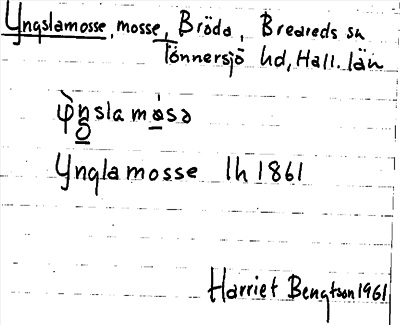 Yngslamosse, mosse, Bröda, Breareds sn
Tönnersjö hd, Hall. län
Ynglamosse lh 1861
Harriet Bengtson 1961